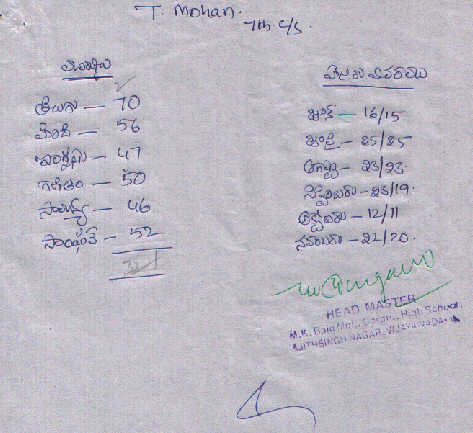 T. Mohan.
7th c/s.
తెలుగు — 70
హిందీ — 56
ఇంగ్లీషు — 47
గణితం — 50
సామాన్య — 46
సాంఘీక — 52
321
జూన్ — 16/15
జూలై — 25/25
ఆగష్టు — 23/23
సెప్టెంబరు — 23/19
అక్టోబరు — 12/11
నవంబరు — 22/20
HEAD MASTER
M.K. Baig Mpl. Corpn. High School,
AJITHSINGH NAGAR, VIJAYAWADA